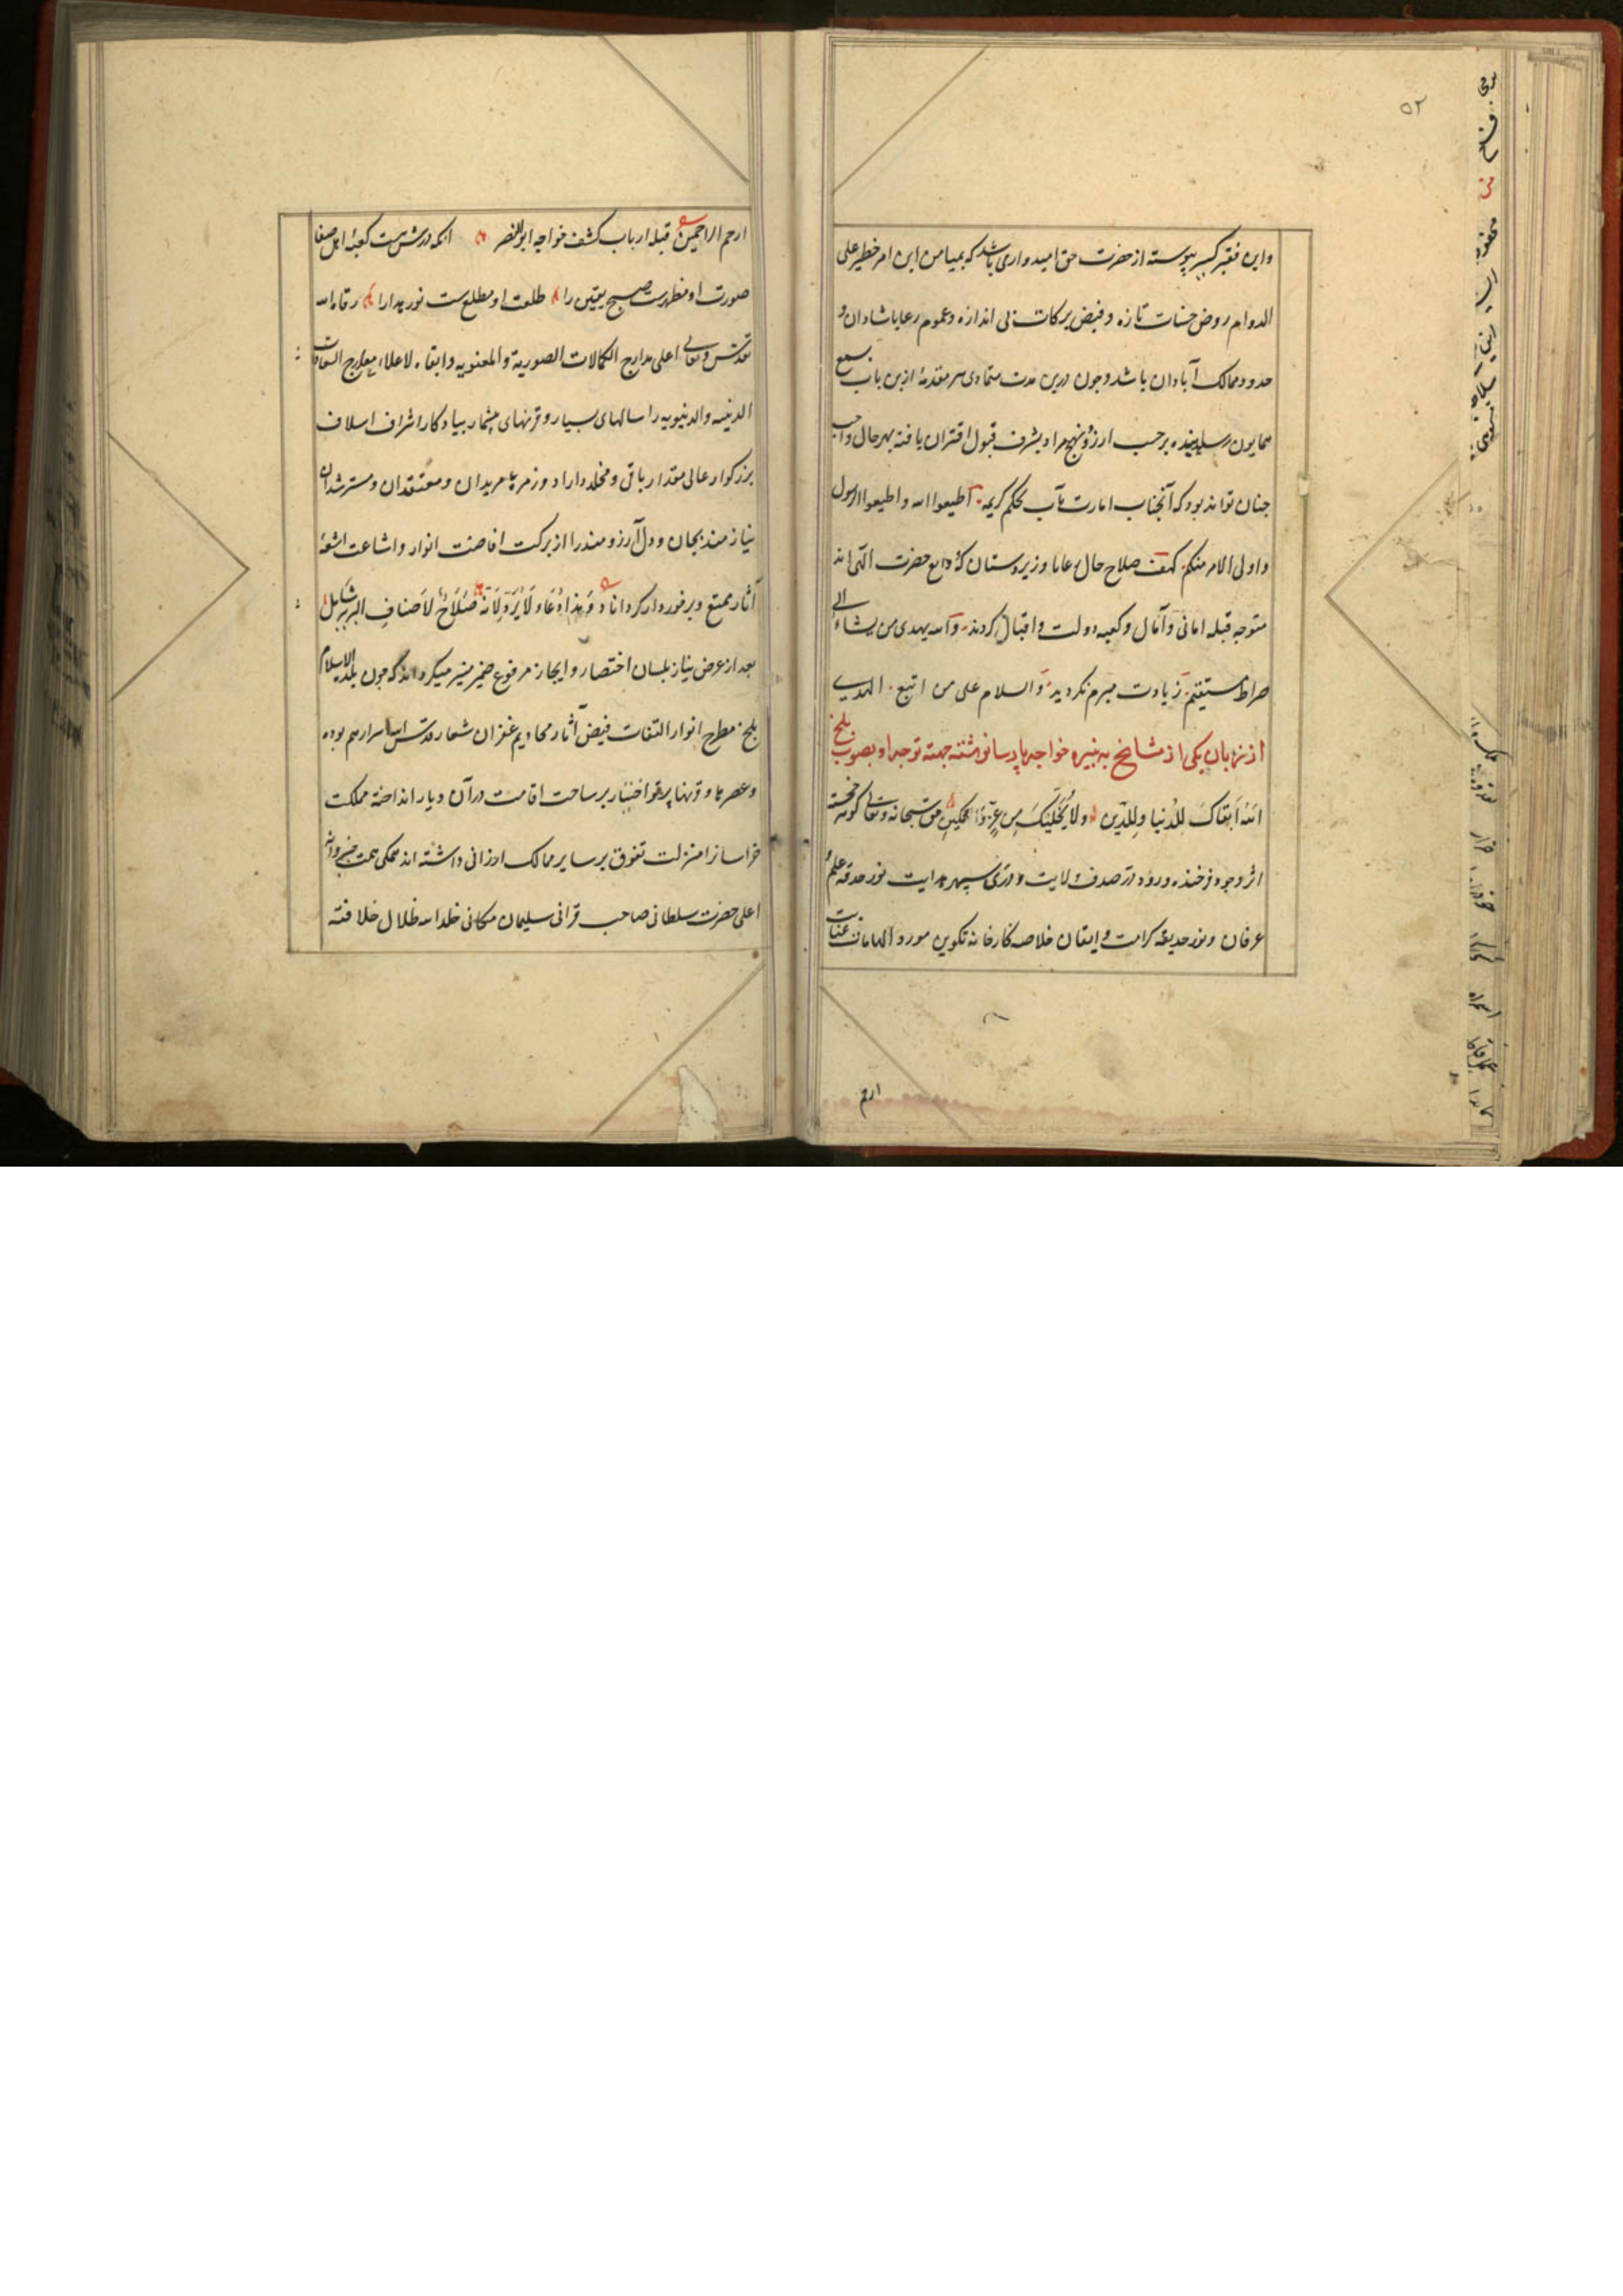 ۵۲
واین فقیر کسیر پیوسته از حضرت حق امیدواری باشد که بمیامن این امر خطیر علی
الدوام روض حسنات تازه و فیض برکات بی اندازه و عموم رعایا شادان و
حدود ممالک آبادان باشد و چون درین مدت متمادی هر مقدمهٔ ازین باب بسمع
همایون رسانیده برحسب آرزو و نهج مراد بشرف قبول اقتران یافته بهر حال واجب
چنان تواند بود که آنجناب امارت مآب بحکم کریمه اطیعوا الله واطیعوا الرسول
واولی الامر منکم کهف صلاح حال رعایا و زیردستان که ودایع حضرت الهی اند
متوجه قبله امانی و آمال و کعبه دولت و اقبال کردند والله یهدی من یشاء الی
صراط مستقیم زیادت مبرم نکردید والسلام علی من اتبع الهدی
از زبان یکی از مشایخ به نبیره خواجه پارسا نوشته جهته توجه او بصوب بلخ
الله ابقاک للدنیا وللدین ولا یخلینک من عز و تمکین حق سبحانه وتعالی کوهر خجسته
اثر وجود فرخنده ورود در صدف ولایت و دری سپهر هدایت نور حدقه علم و
عرفان ونور حدیقه کرامت و ایقان خلاصه کارخانه تکوین مورد الهامات عنایت
ارحم
ارحم الراحمین قبله ارباب کشف خواجه ابوالنصر انکه درش هست کعبهٔ اهل صفا
صورت او مظهرست صبح یقین را طلعت او مطلع ست نور هدا را رقاه الله
تقدس وتعالی اعلی مدارج الکمالات الصوریة والمعنویه وابقاه لاعلاء معارج السعادات
الدینیه والدنیویه را سالهای بسیار و قرنهای بیشمار بیادکار اشراف اسلاف
بزرکوار عالی مقدار باقی و مخلد داراد و زمرهٔ مریدان و معتقدان و مسترشدان
نیازمند بجان و دل آرزومند را از برکت افاضت انوار و اشاعت اشعهٔ
آثار ممتع و برخوردار کرداناد وهذا دعاء لا یرد لانه صلاح لاصناف البریه شامل
بعد از عرض نیاز بلسان اختصار و ایجاز مرفوع ضمیر منیر میکرداند که چون بلدة الاسلام
بلخ مطرح انوار التفات فیض آثار مخادیم غفران شعار قدس الله اسرارهم بوده
وعصرها و قرنها پرتو اختیار بر ساحت اقامت در آن دیار انداخته مملکت
خراسانرا منزلت تفوق بر سایر ممالک ارزانی داشته اند همکی همت خسروانه
اعلی حضرت سلطانی صاحب قرانی سلیمان مکانی خلد الله ظلال خلافته